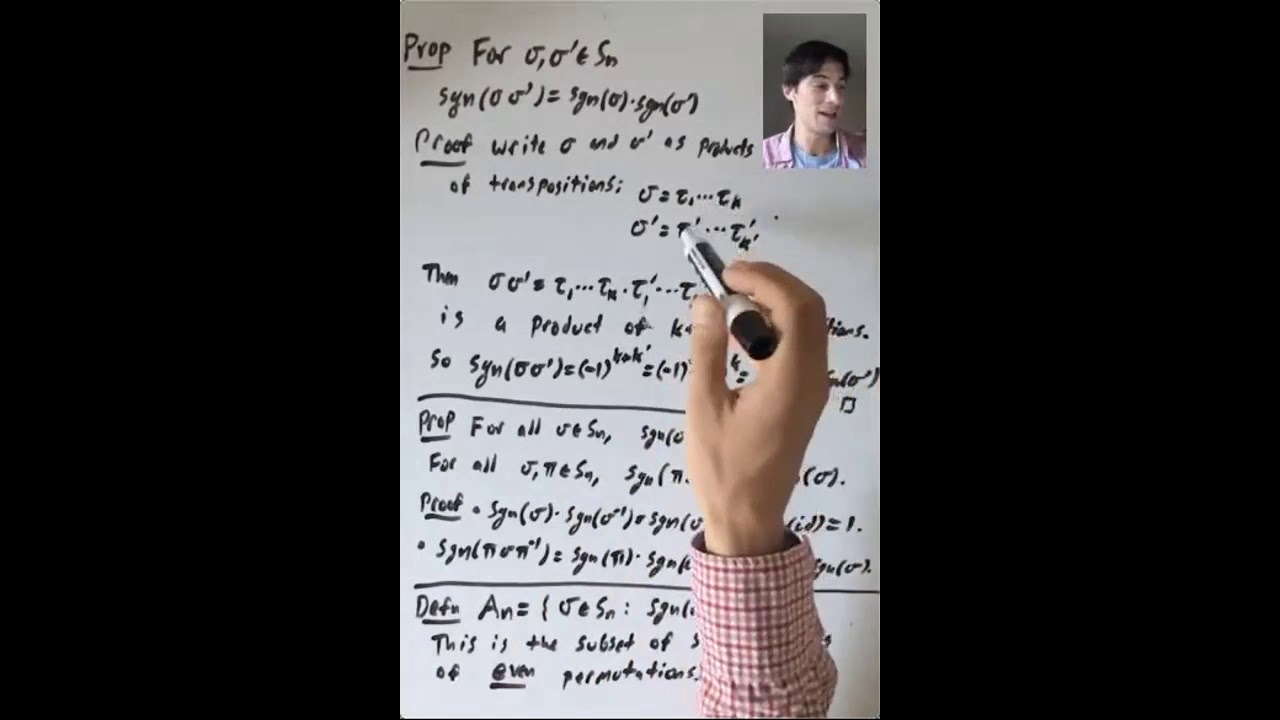 Prop For σ, σ' ∈ Sn
sgn(σ σ') = sgn(σ)·sgn(σ')
Proof Write σ and σ' as products
of transpositions: σ = τ₁ ⋯ τₖ
σ' = τ' ⋯ τ'ₖ'
Then σσ' = τ₁ ⋯ τₖ · τ₁' ⋯ τ
is a product of k+
So sgn(σσ') = (-1)^{k+k'} = (-1)
Prop For all σ ∈ Sn, sgn(σ
For all σ, π ∈ Sn, sgn(π (σ).
Proof • sgn(σ)·sgn(σ⁻¹) = sgn(σ (id) = 1.
• sgn(πσπ⁻¹) = sgn(π)· sgn( sgn(σ).
Defn An = { σ ∈ Sn : sgn(
This is the subset of
of even permutations.